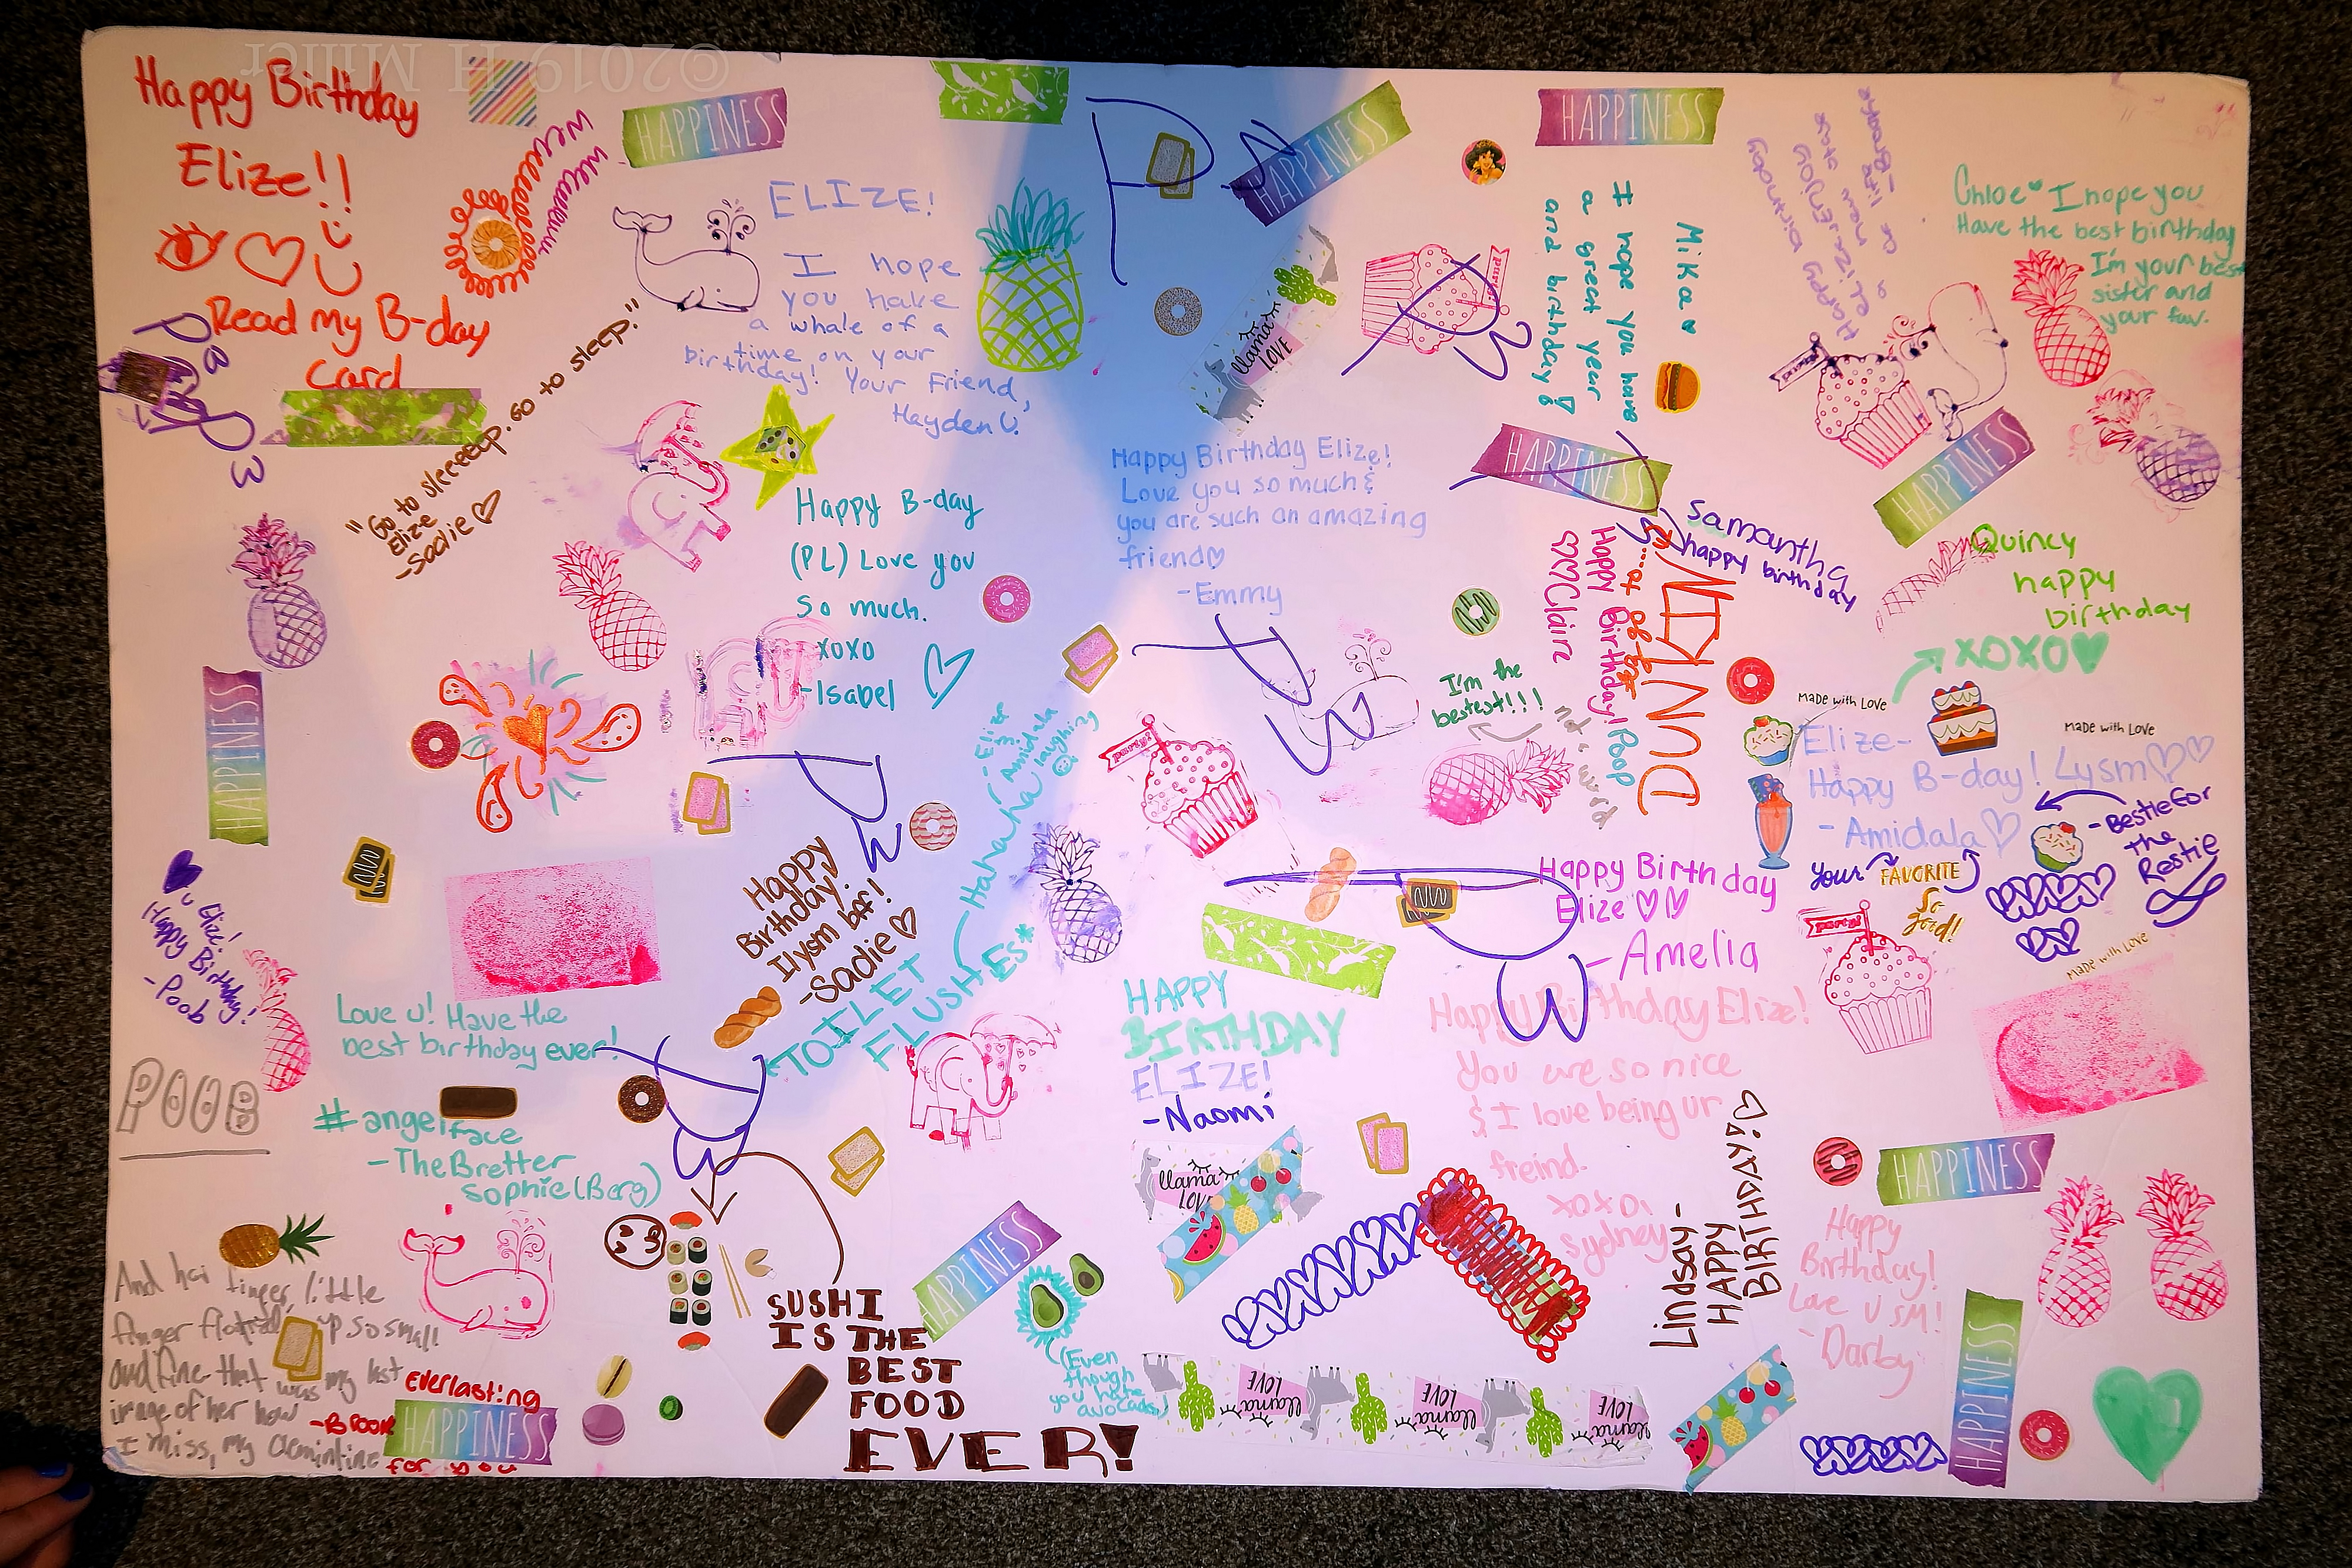 ©2019 H Miller
Happy Birthday
Elize!!
Read my B-day
Card
HAPPINESS
ELIZE!
I hope
you have
a whale of a
time on your
birthday! Your Friend,
Hayden U.
"Go to sleeeep. Go to sleep."
Elize
-Sadie
Happy B-day
(PL) Love you
so much.
xoxo
-Isabel
P
HAPPINESS
llama
LOVE
party!
HAPPINESS
Mika
I hope you have
a great year
and birthday
Happy Birthday Elize!
Love you so much &
you are such an amazing
friend
-Emmy
HAPPINESS
Happy birthday
Chloe I hope you
Have the best birthday
I'm your best
sister and
your fav.
party!
HAPPINESS
Samantha
happy birthday
Happy Birthday! Poop
Claire
Quincy
happy
birthday
XOXO
I'm the
bestest!!!
not a word
made with Love
made with Love
Elize-
Happy B-day! Lysm
-Amidala
-Bestie for
the
Restie
your FAVORITE
So
good!
made with Love
party!
HAPPINESS
U Elize!
Happy Birthday!
-Poob
POOB
Happy
Birthday
Ilysm bff!
-Sadie
-Elize
&
Amidala
laughing
Hahahaha
*TOILET
FLUSHES*
party!
Happy Birthday
Elize
-Amelia
Love U! Have the
best birthday ever!
#angelface
-The Bretter
Sophie (Berg)
HAPPY
BIRTHDAY
ELIZE!
-Naomi
Happy Birthday Elize!
You are so nice
& I love being ur
freind.
xoxo,
Sydney
Lindsay-
HAPPY
BIRTHDAY!
HAPPINESS
Happy
Birthday!
Love U SM!
-Darby
HAPPINESS
llama
LOVE
HAPPINESS
SUSHI
IS THE
BEST
FOOD
EVER!
(Even
though
you hate
avocados)
And her finger little
finger up so small
and fine that was my last
image of her how
I miss, my
everlasting
HAPPINESS
for you
-Brook
LOVE
llama
LOVE
llama
LOVE
llama